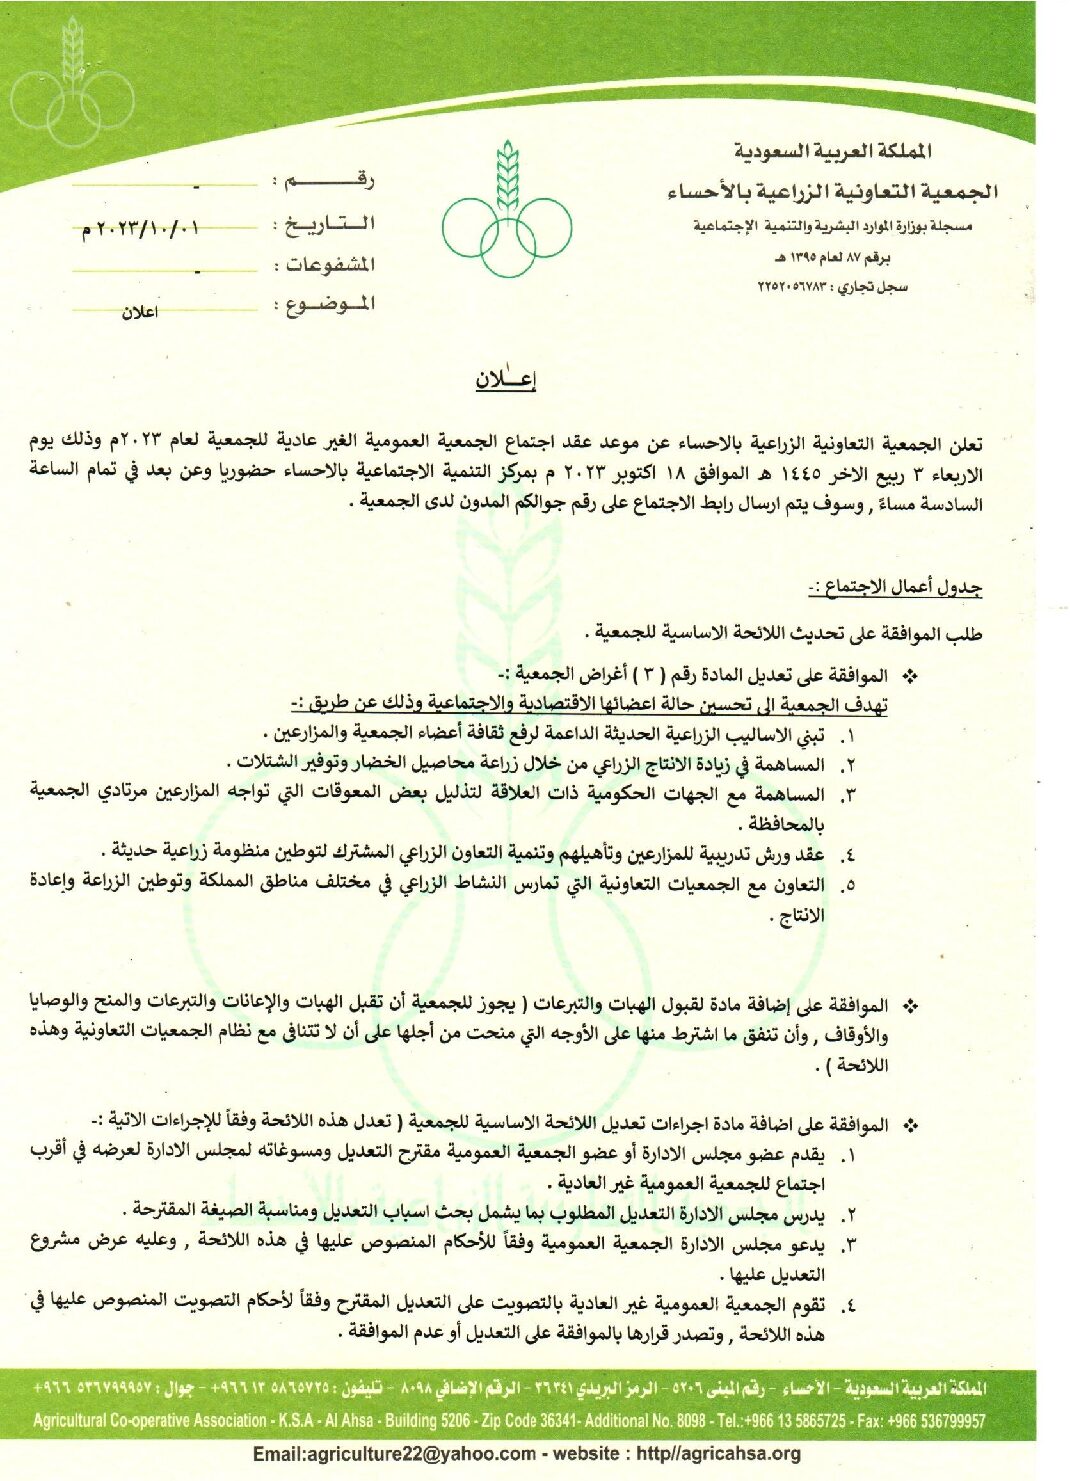 المملكة العربية السعودية
الجمعية التعاونية الزراعية بالأحساء
مسجلة بوزارة الموارد البشرية والتنمية الإجتماعية
برقم ٨٧ لعام ١٣٩٥ هـ
سجل تجاري : ٢٢٥٢٠٥٦٧٨٣
رقـــــــم : -
التـاريـخ : ٢٠٢٣/١٠/٠١ م
المشفوعات : -
المـوضـوع : اعلان
إعــلان
تعلن الجمعية التعاونية الزراعية بالاحساء عن موعد عقد اجتماع الجمعية العمومية الغير عادية للجمعية لعام ٢٠٢٣م وذلك يوم
الاربعاء ٣ ربيع الاخر ١٤٤٥ هـ الموافق ١٨ اكتوبر ٢٠٢٣ م بمركز التنمية الاجتماعية بالاحساء حضوريا وعن بعد في تمام الساعة
السادسة مساءً , وسوف يتم ارسال رابط الاجتماع على رقم جوالكم المدون لدى الجمعية .
جدول أعمال الاجتماع :-
طلب الموافقة على تحديث اللائحة الاساسية للجمعية .
❖ الموافقة على تعديل المادة رقم ( ٣ ) أغراض الجمعية :-
تهدف الجمعية الى تحسين حالة اعضائها الاقتصادية والاجتماعية وذلك عن طريق :-
١. تبني الاساليب الزراعية الحديثة الداعمة لرفع ثقافة أعضاء الجمعية والمزارعين .
٢. المساهمة في زيادة الانتاج الزراعي من خلال زراعة محاصيل الخضار وتوفير الشتلات .
٣. المساهمة مع الجهات الحكومية ذات العلاقة لتذليل بعض المعوقات التي تواجه المزارعين مرتادي الجمعية
بالمحافظة .
٤. عقد ورش تدريبية للمزارعين وتأهيلهم وتنمية التعاون الزراعي المشترك لتوطين منظومة زراعية حديثة .
٥. التعاون مع الجمعيات التعاونية التي تمارس النشاط الزراعي في مختلف مناطق المملكة وتوطين الزراعة وإعادة
الانتاج .
❖ الموافقة على إضافة مادة لقبول الهبات والتبرعات ( يجوز للجمعية أن تقبل الهبات والإعانات والتبرعات والمنح والوصايا
والأوقاف , وأن تنفق ما اشترط منها على الأوجه التي منحت من أجلها على أن لا تتنافى مع نظام الجمعيات التعاونية وهذه
اللائحة ) .
❖ الموافقة على اضافة مادة اجراءات تعديل اللائحة الاساسية للجمعية ( تعدل هذه اللائحة وفقاً للإجراءات الاتية :-
١. يقدم عضو مجلس الادارة أو عضو الجمعية العمومية مقترح التعديل ومسوغاته لمجلس الادارة لعرضه في أقرب
اجتماع للجمعية العمومية غير العادية .
٢. يدرس مجلس الادارة التعديل المطلوب بما يشمل بحث اسباب التعديل ومناسبة الصيغة المقترحة .
٣. يدعو مجلس الادارة الجمعية العمومية وفقاً للأحكام المنصوص عليها في هذه اللائحة , وعليه عرض مشروع
التعديل عليها .
٤. تقوم الجمعية العمومية غير العادية بالتصويت على التعديل المقترح وفقاً لأحكام التصويت المنصوص عليها في
هذه اللائحة , وتصدر قرارها بالموافقة على التعديل أو عدم الموافقة .
المملكة العربية السعودية - الأحساء - رقم المبنى ٥٢٠٦ - الرمز البريدي ٣٦٣٤١ - الرقم الإضافي ٨٠٩٨ - تليفون : ٥٨٦٥٧٢٥ ١٣ ٩٦٦+ - جوال : ٥٣٦٧٩٩٩٥٧ ٩٦٦+
Agricultural Co-operative Association - K.S.A - Al Ahsa - Building 5206 - Zip Code 36341- Additional No. 8098 - Tel.:+966 13 5865725 - Fax: +966 536799957
Email:agriculture22@yahoo.com - website : http//agricahsa.org